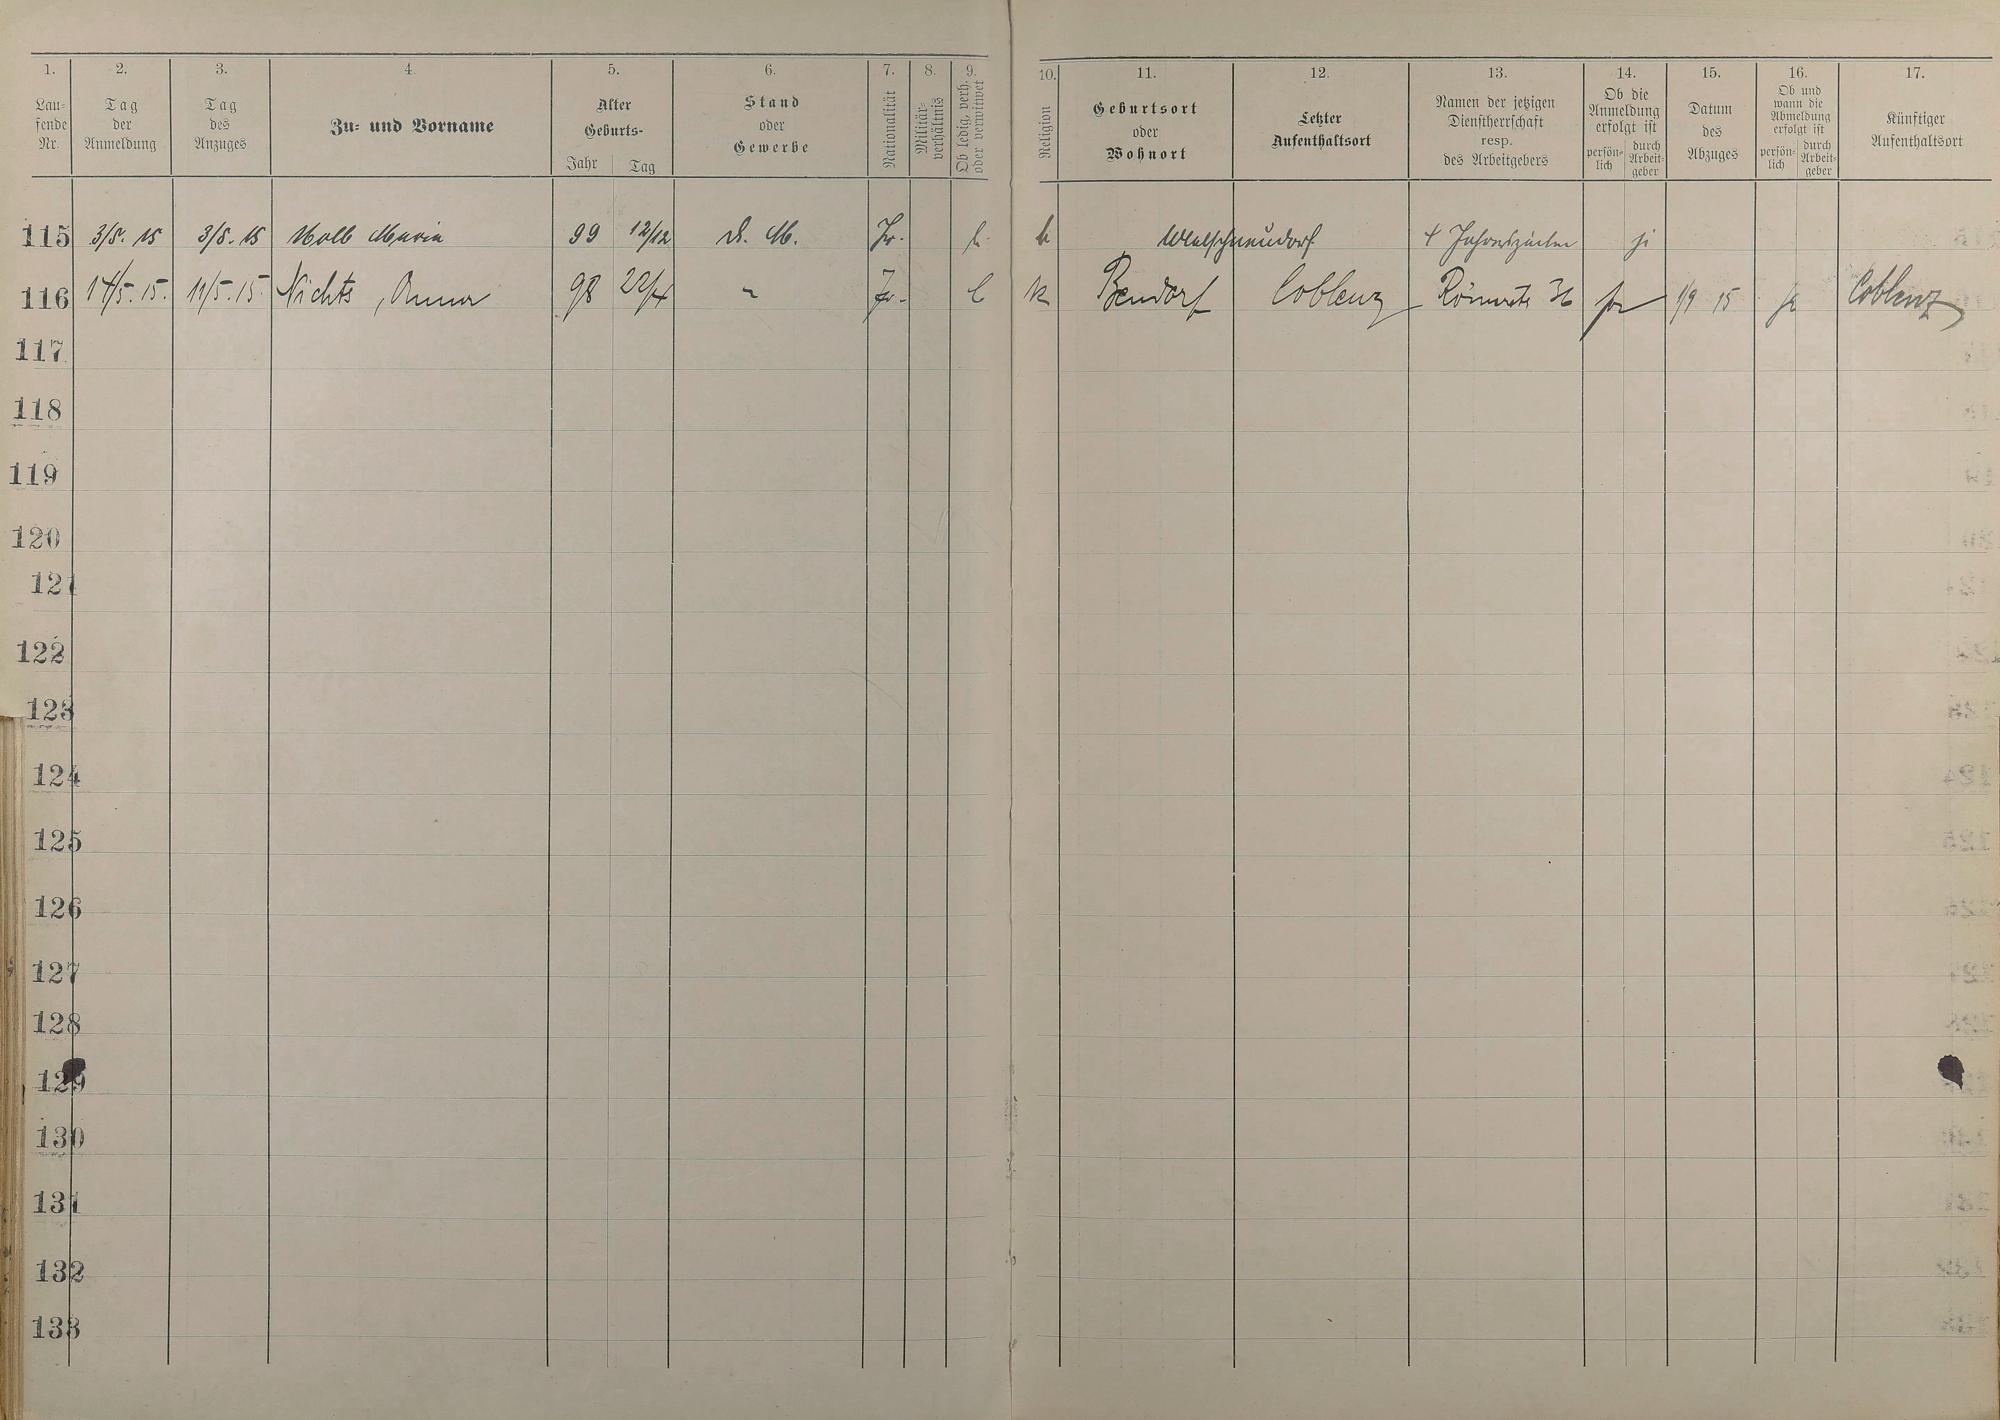 1. 2. 3. 4. 5. 6. 7. 8. 9. 10. 11. 12. 13. 14. 15. 16. 17.
Lau-
fende
Nr.
Tag
der
Anmeldung
Tag
des
Anzuges
Zu- und Vorname
Alter
Geburts-
Jahr Tag
Stand
oder
Gewerbe
Nationalität
Militär-
verhältnis
Ob ledig, verh.
oder verwitwet
Religion
Geburtsort
oder
Wohnort
Letzter
Aufenthaltsort
Namen der jetzigen
Dienstherrschaft
resp.
des Arbeitgebers
Ob die
Anmeldung
erfolgt ist
persön-
lich
durch
Arbeit-
geber
Datum
des
Abzuges
Ob und
wann die
Abmeldung
erfolgt ist
persön-
lich
durch
Arbeit-
geber
Künftiger
Aufenthaltsort
115 3/5. 15 3/5. 15 Noll Maria 99 12/12 d. M. Pr. l. k Welschneudorf 4 ja
116 14/5. 15. 11/5. 15. Nichts, Anna 98 22/4 " Pr. l k Bendorf Coblenz Römerstr 36 ja 1/9 15 ja Coblenz
117
118
119
120
121
122
123
124
125
126
127
128
129
130
131
132
133